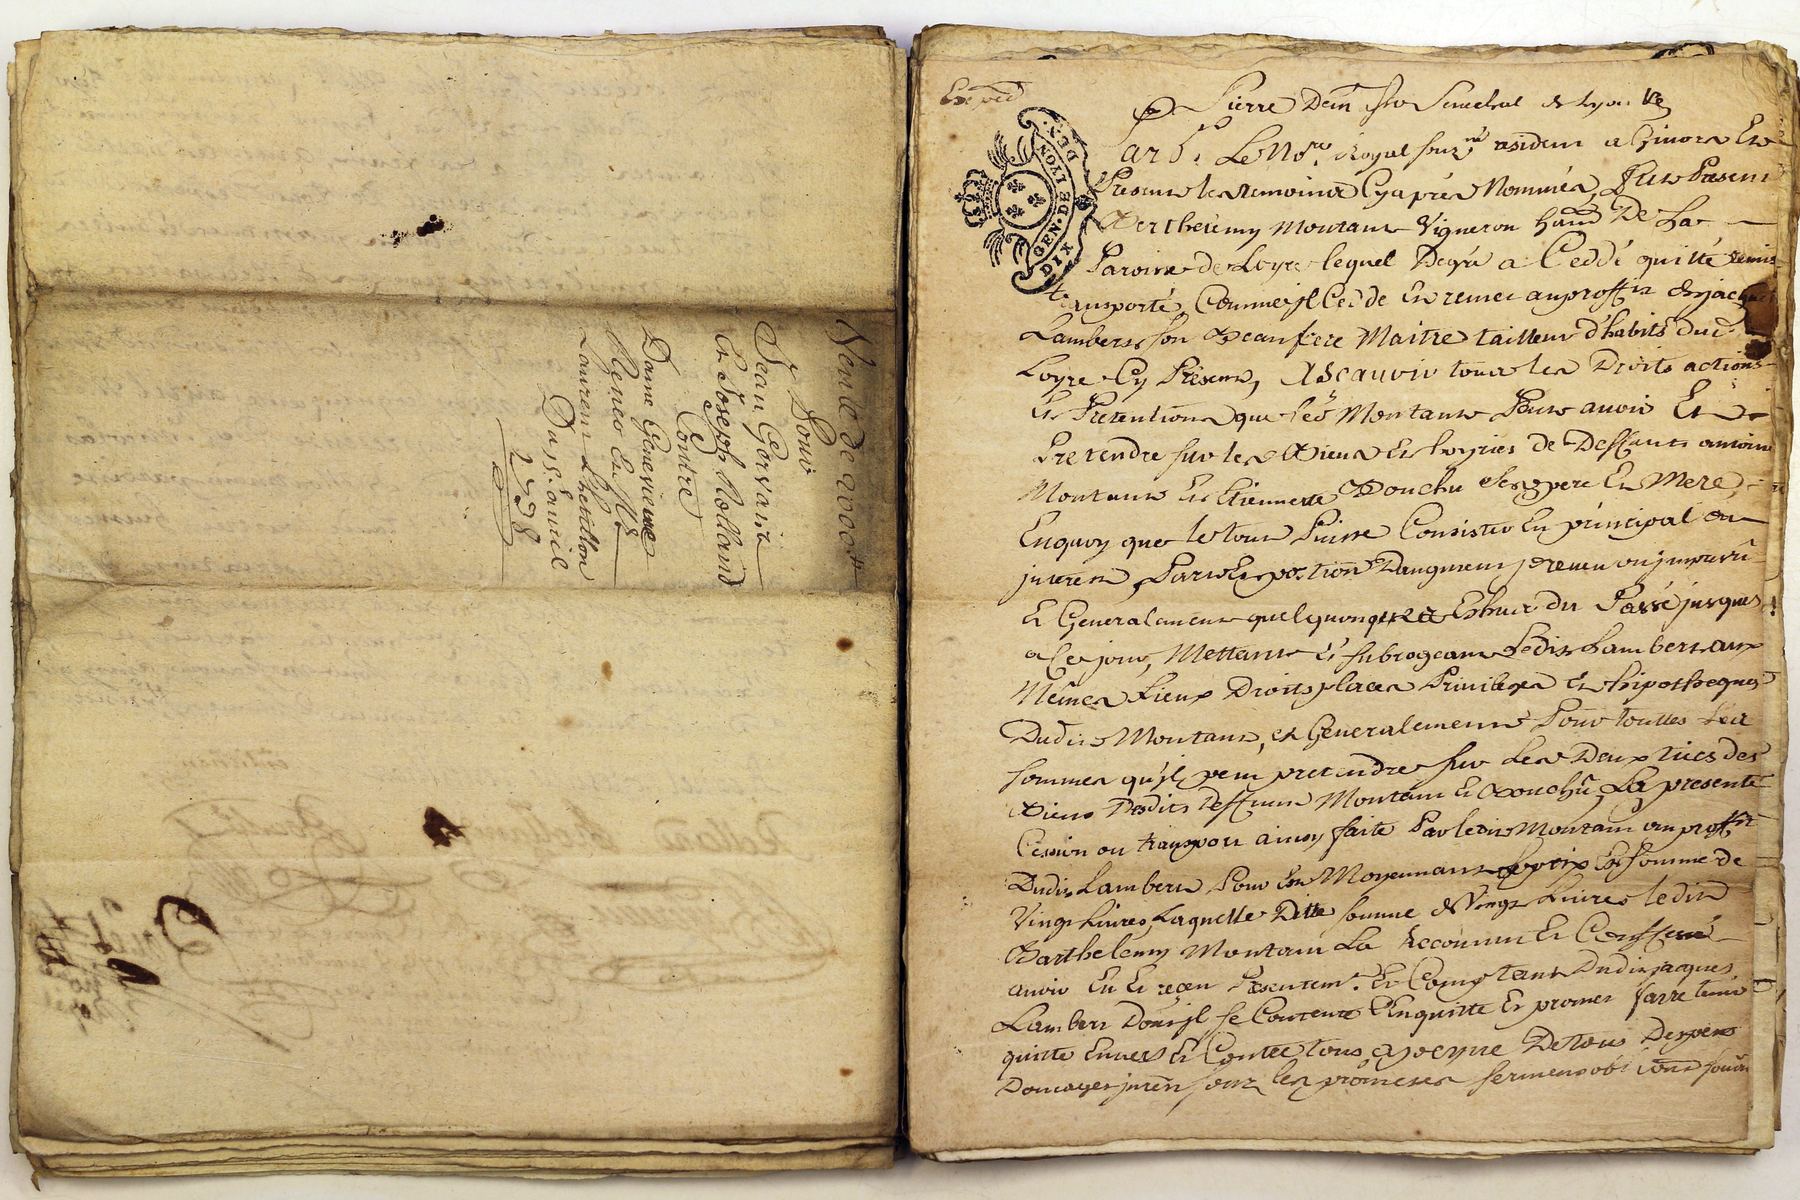 Vente de 2000 ₶
Pour
Jean Gervais
Et Joseph Rolland
Contre
Dame Genevieve
Laurens Chetillon
Du 15e. avril
1738
Exped
GEN. DE LYON
DIX DEN.
Pierre Senechal de Lyon
Par d. Le No.re Royal sous.né résident a Givors Et
Presents les temoins Cyaprès Nommés, fut Present
Berthelemy Montant Vigneron hand De La
Paroisse de Loyre lequel Degré a Ceddé quitté remis
transporté, Comme jl Cedde Et remet au proffit de jacques
Lambert son Beaufrere Maitre tailleur d'habits dud
Loyre Cy Présent, ascauoir tous les Droits actions
Et Pretentions que led Montant Peut auoir Et
Pretendre sur les Biens Et hoyries de Deffunts antoine
Montant Et Etiennette Bouchu ses pere Et Mere,
Enquoy que le tout Puisse Consister En principal
interest, Parts Et portion Daugment preueu ou jmpreuû
Et Generalement quelquonques Eschue du Passé jusques
a Ce jour, Mettant Et subrogeant Ledit Lambert aux
Mêmes Lieux Droits places Priuileges Et hipotheques
Dudit Montant, et Generalement Pour touttes les
sommes qu'jl peut pretendre sur les Deux des
Biens Desdits Deffunts Montant Et Bouchû, La presente
Cession ou transport ainsy faite Par ledit Montant au proffit
Dudit Lambert Pour Et Moyennant le prix Et somme de
Vingt Liures, Laquelle Ditte somme de Vingt Liures ledit
Barthelemy Montant La Reconnut Et Confessé
auoir Eu Et reçeu Presentem.t Et Comptant Dudit jacques
Lambert Dont jl se Contente L'Enquitte Et promet faire tenir
quitte Enuers Et Contre tous a peyne De tous Despens
Domages sous les promesses serment